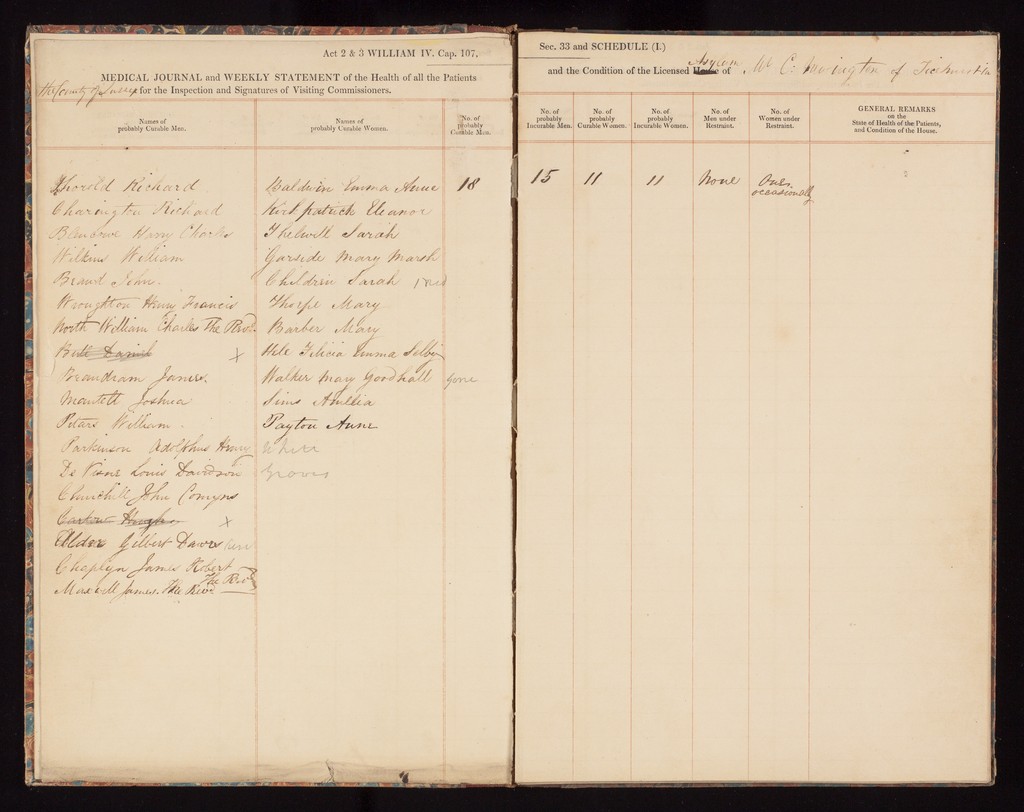 Act 2 & 3 WILLIAM IV. Cap. 107.
MEDICAL JOURNAL and WEEKLY STATEMENT of the Health of all the Patients
the County of Sussex for the Inspection and Signatures of Visiting Commissioners.
Names of probably Curable Men.
Names of probably Curable Women.
No. of probably Curable Men.
Thorold Richard
Baldwin Emma Anne
18
Charington Richard
Kirkpatrick Eleanor
Harry Charles
Thelwell Sarah
Wilkins William
Garside Mary Marsh
Beand John.
Children Sarah
Wroughton Henry Francis
Thorpe Mary
North William Charles The Revd.
Barber Mary
Daniel x
Hele Felicia Emma Selby
James.
Walker Mary Goodhall gone
Mantell Joshua
Sims Amelia
Peters William.
Payton Anne
Parkinson Adolphus Henry
White
De Visne Louis Davidson
Groves
Churchill John Comyns
Hugh x
Elder Gilbert Dawes
Chaplyn James Robert
The Revd
Maxwell James. The Revd.
Sec. 33 and SCHEDULE (I.)
Asylum
and the Condition of the Licensed House of Mr C. Newington of Ticehurst in
No. of probably Incurable Men.
No. of probably Curable Women.
No. of probably Incurable Women.
No. of Men under Restraint.
No. of Women under Restraint.
GENERAL REMARKS on the State of Health of the Patients, and Condition of the House.
15
11
11
None
One
occasionally